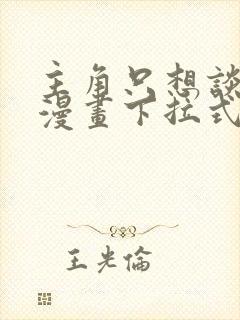 主角只想談
漫畫下拉式
王光倫